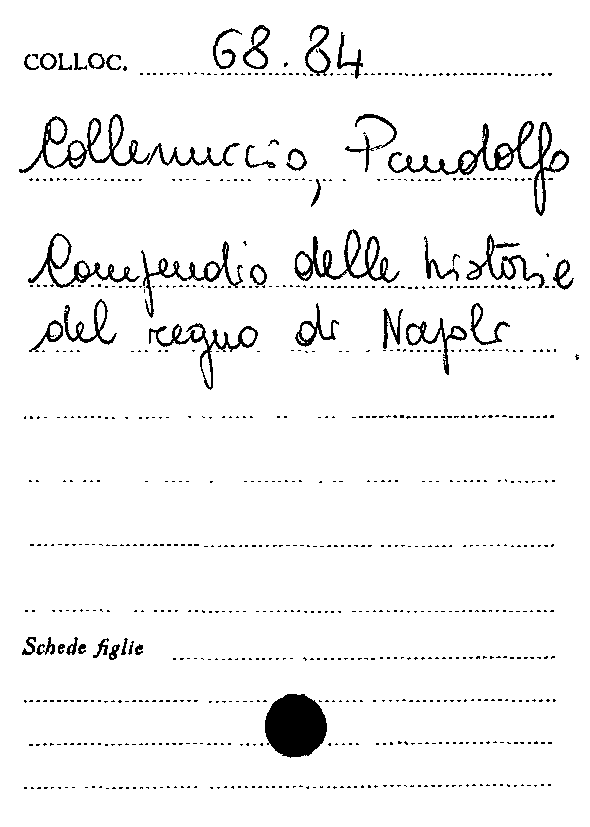 COLLOC. 68.84
Collenuccio, Pandolfo
Compendio delle historie
del regno di Napoli
Schede figlie